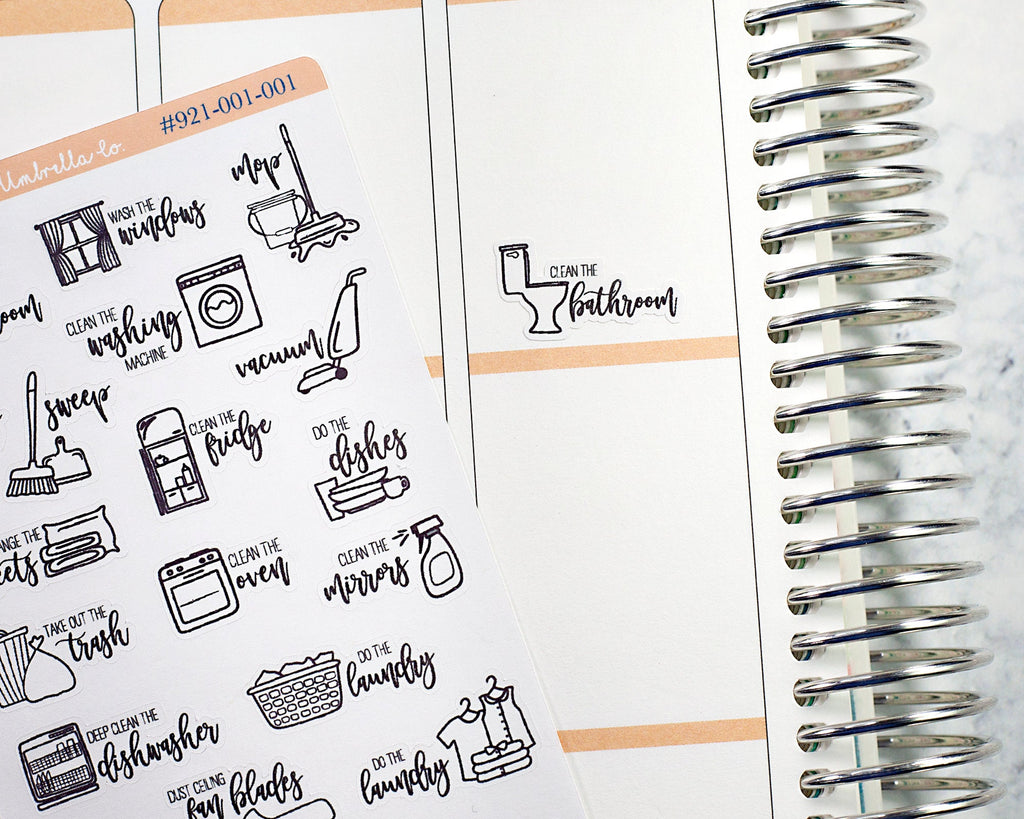 #921-001-001
Umbrella Co.
mop
WASH THE
windows
CLEAN THE
washing
MACHINE
vacuum
sweep
CLEAN THE
fridge
DO THE
dishes
CLEAN THE
oven
CLEAN THE
mirrors
THE
TAKE OUT THE
trash
DO THE
laundry
DEEP CLEAN THE
dishwasher
DO THE
laundry
DUST CEILING
fan blades
CLEAN THE
bathroom